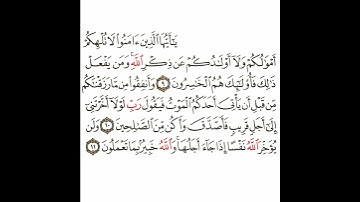 يَٰٓأَيُّهَا ٱلَّذِينَ ءَامَنُوا۟ لَا تُلْهِكُمْ
أَمْوَٰلُكُمْ وَلَآ أَوْلَٰدُكُمْ عَن ذِكْرِ ٱللَّهِ ۚ وَمَن يَفْعَلْ
ذَٰلِكَ فَأُو۟لَٰٓئِكَ هُمُ ٱلْخَٰسِرُونَ ٩ وَأَنفِقُوا۟ مِن مَّا رَزَقْنَٰكُم
مِّن قَبْلِ أَن يَأْتِىَ أَحَدَكُمُ ٱلْمَوْتُ فَيَقُولَ رَبِّ لَوْلَآ أَخَّرْتَنِىٓ
إِلَىٰٓ أَجَلٍ قَرِيبٍ فَأَصَّدَّقَ وَأَكُن مِّنَ ٱلصَّٰلِحِينَ ١٠ وَلَن
يُؤَخِّرَ ٱللَّهُ نَفْسًا إِذَا جَآءَ أَجَلُهَا ۚ وَٱللَّهُ خَبِيرٌۢ بِمَا تَعْمَلُونَ ١١